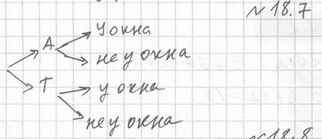 № 18.7
У окна
А
не у окна
Т
у окна
не у окна
№ 18.8